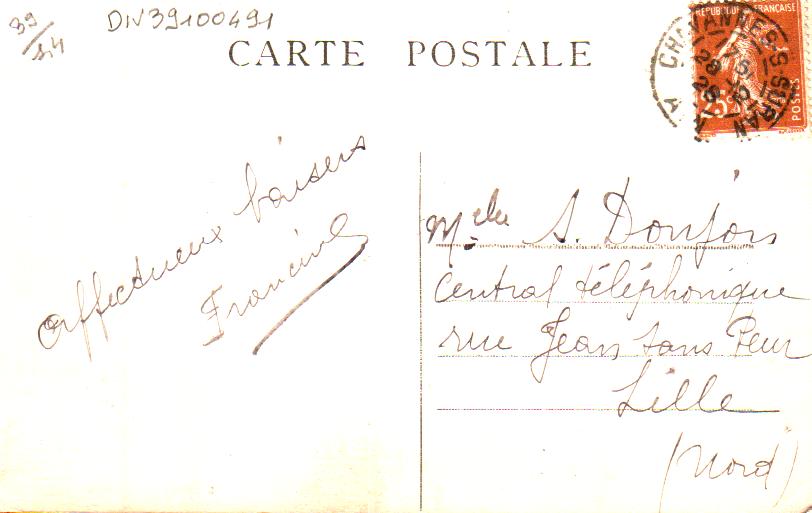 39/14
DIV39100491
CARTE POSTALE
REPUBLIQUE FRANÇAISE
25c
POSTES
Affectueux baisers
Francine
Melle S. Donjon
Central téléphonique
rue Jean sans Peur
Lille
(Nord)